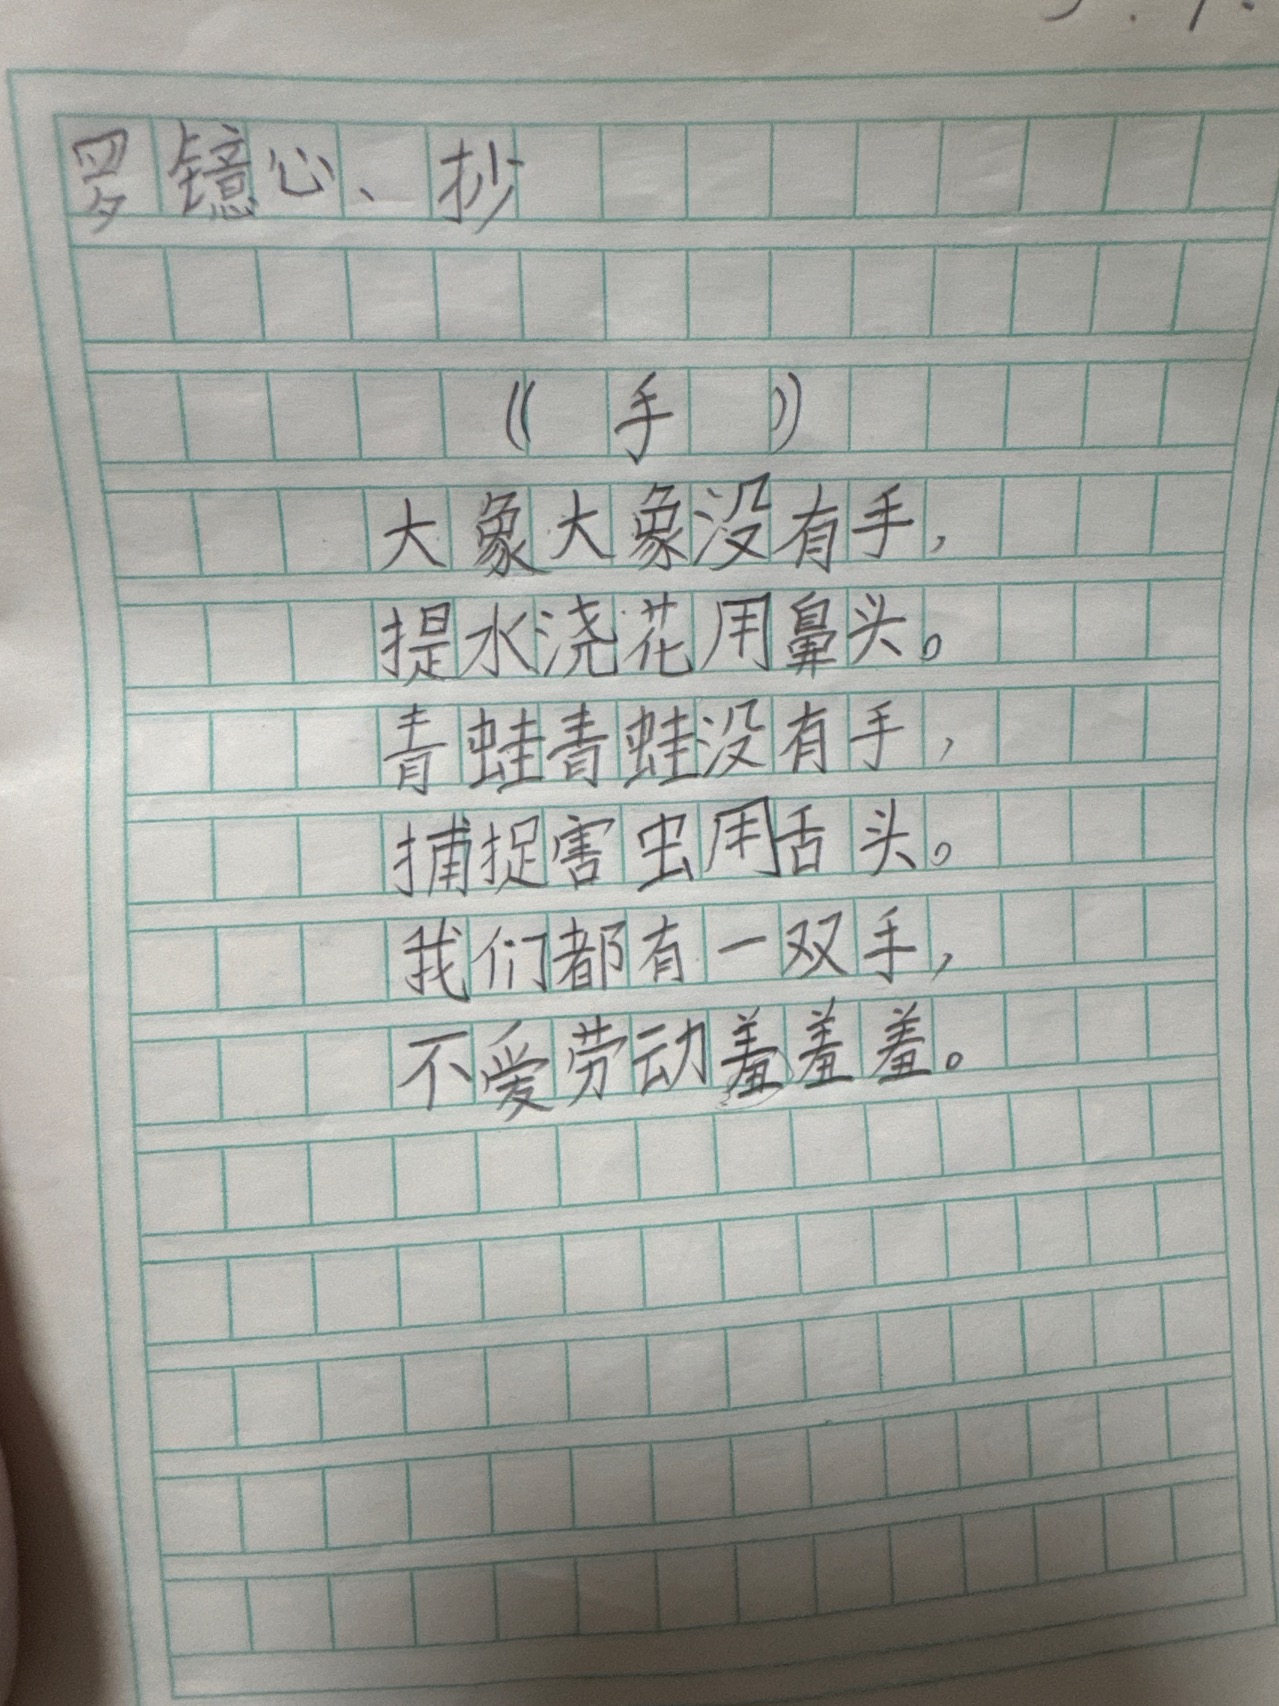 罗镱心、抄
《 手 》
大象大象没有手,
提水浇花用鼻头。
青蛙青蛙没有手,
捕捉害虫用舌头。
我们都有一双手,
不爱劳动羞羞羞。